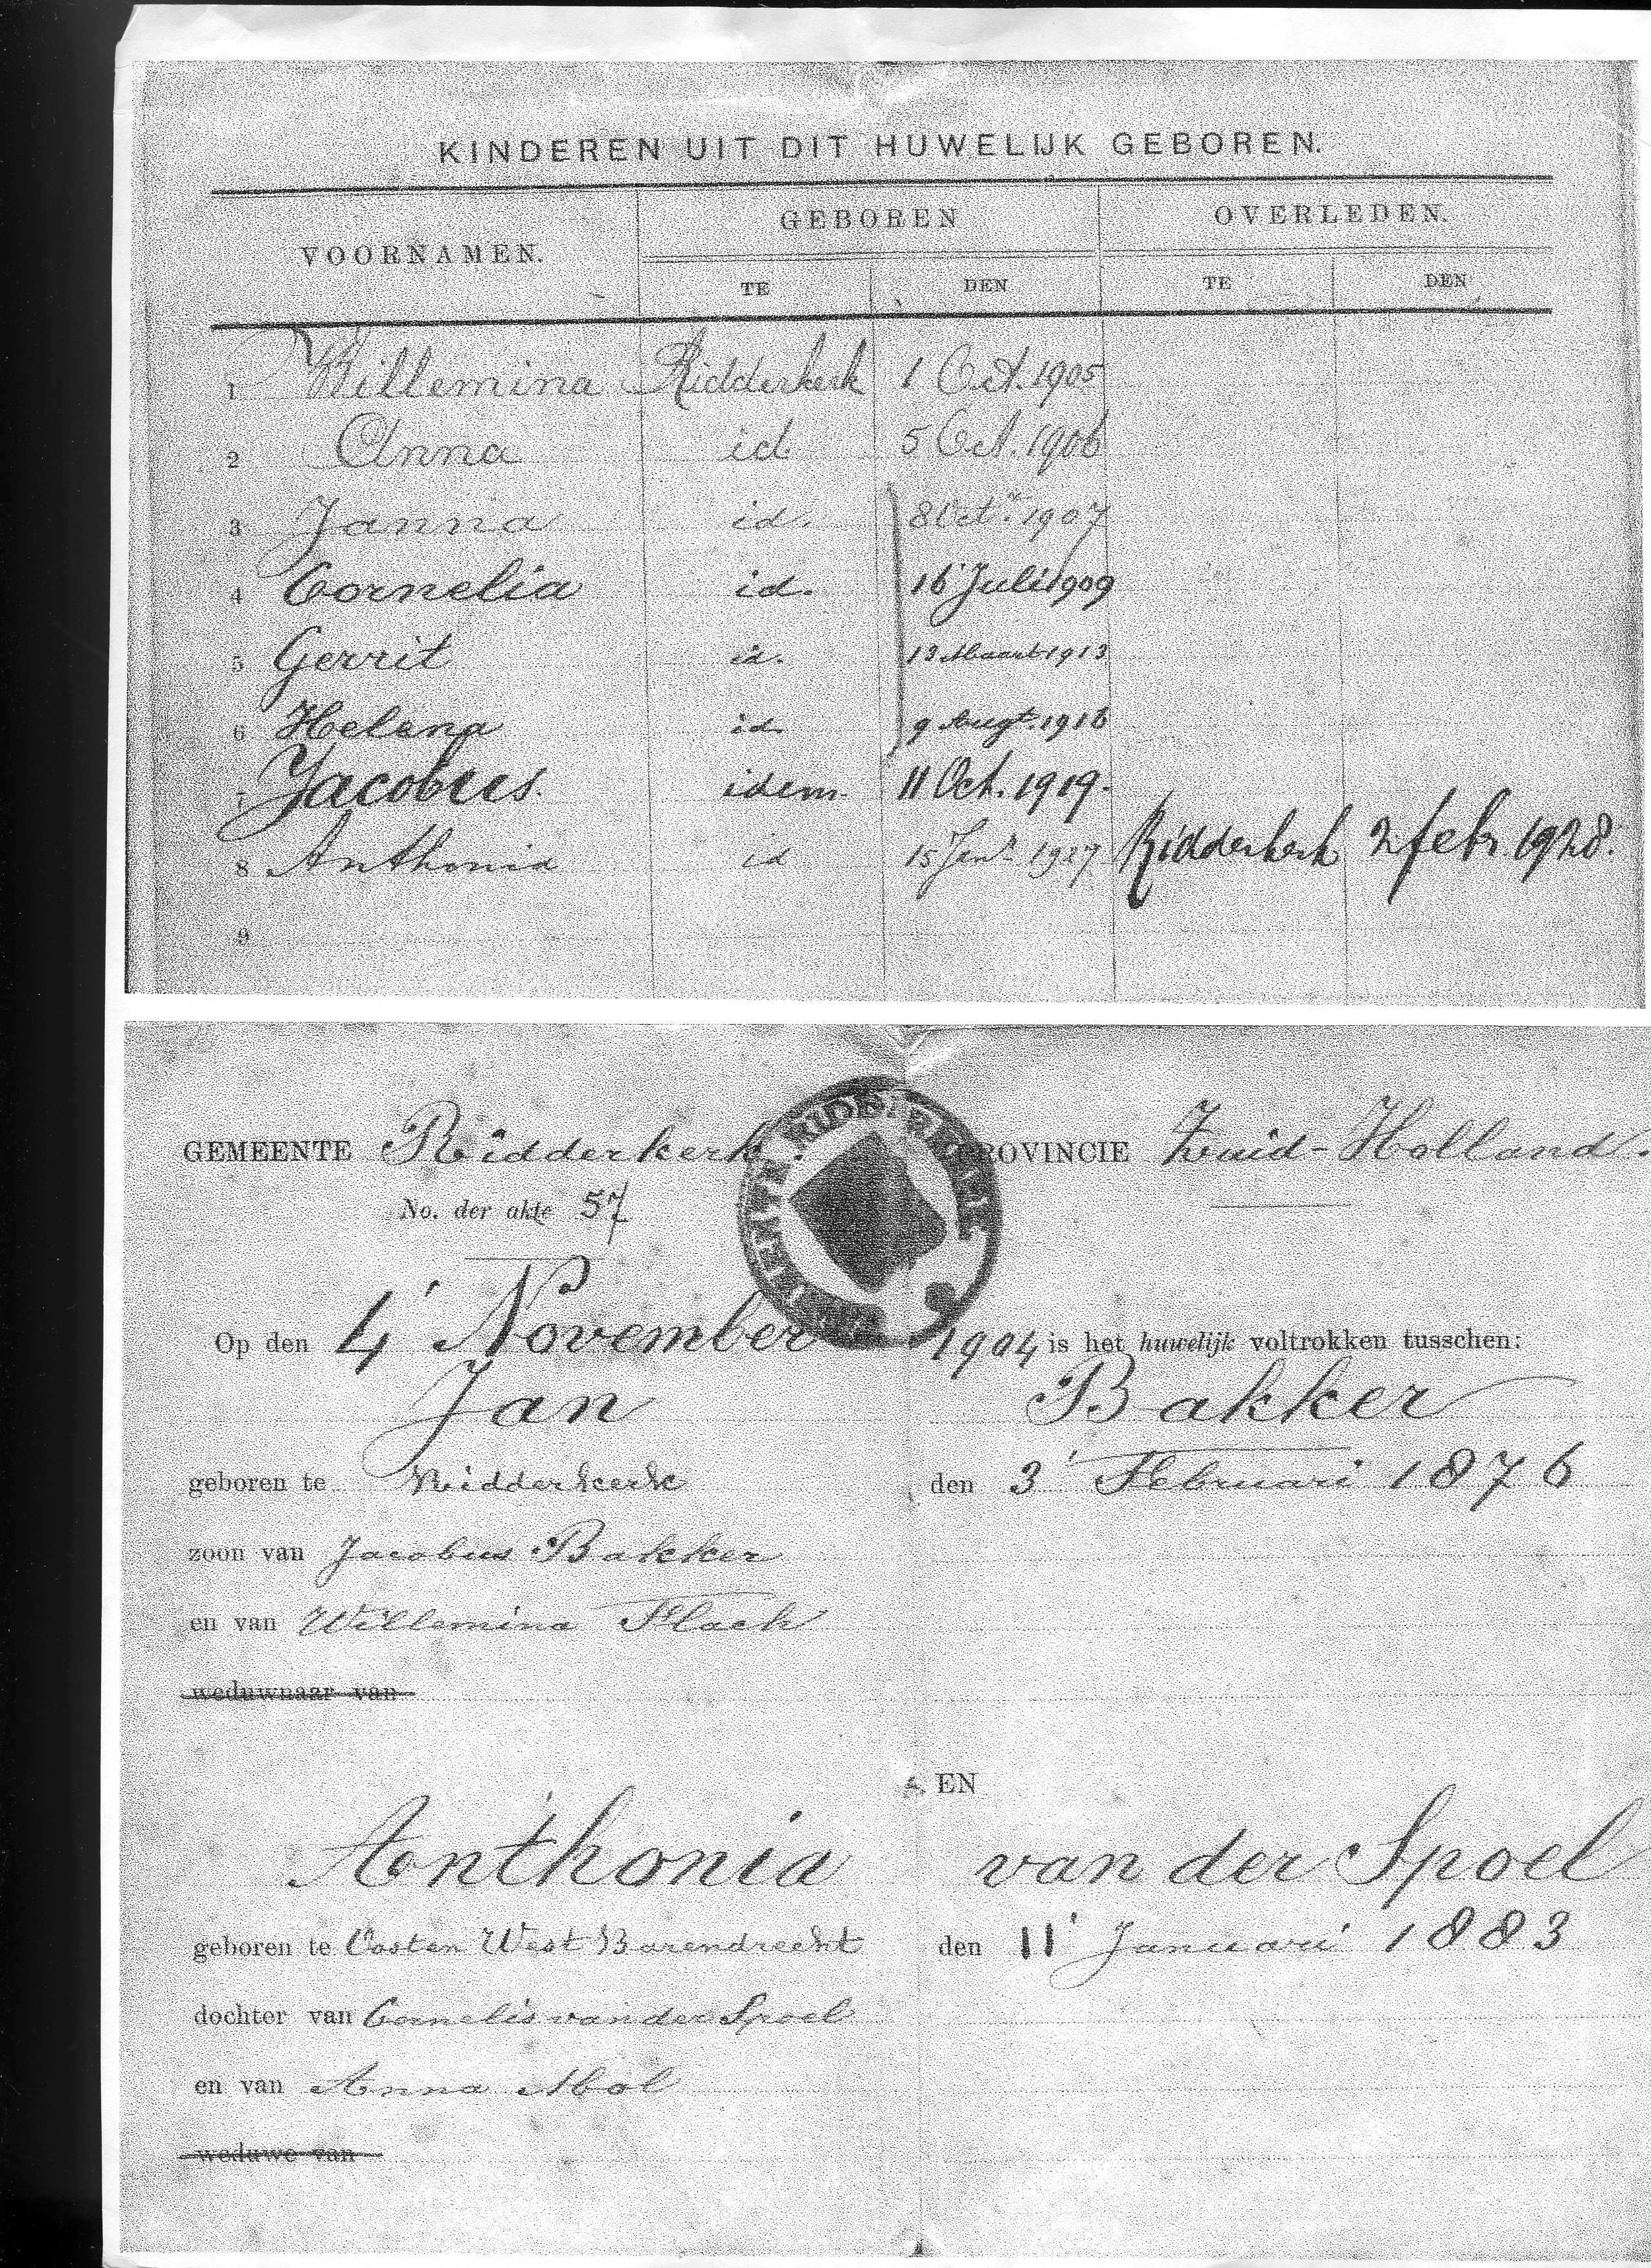 KINDEREN UIT DIT HUWELIJK GEBOREN.
VOORNAMEN. GEBOREN OVERLEDEN.
TE DEN TE DEN
1 Willemina Ridderkerk 1 Oct. 1905
2 Anna id 5 Oct. 1906
3 Janna id. 8 Oct. 1907
4 Cornelia id. 16 Juli 1909
5 Gerrit id. 13 Maart 1913
6 Helena id. 9 Augt. 1916
7 Jacobus. idem. 11 Oct. 1919.
8 Anthonia id 15 Jan. 1927 Ridderkerk 2 febr. 1928.
9
GEMEENTE Ridderkerk. PROVINCIE Zuid-Holland.
GEMEENTE RIDDERKERK
No. der akte 57
Op den 4 November 1904 is het huwelijk voltrokken tusschen:
Jan Bakker
geboren te Ridderkerk den 3 Februari 1876
zoon van Jacobus Bakker
en van Willemina Flach
weduwnaar van
EN
Anthonia van der Spoel
geboren te Oost en West Barendrecht den 11 Januari 1883
dochter van Cornelis van der Spoel
en van Anna Mol
weduwe van